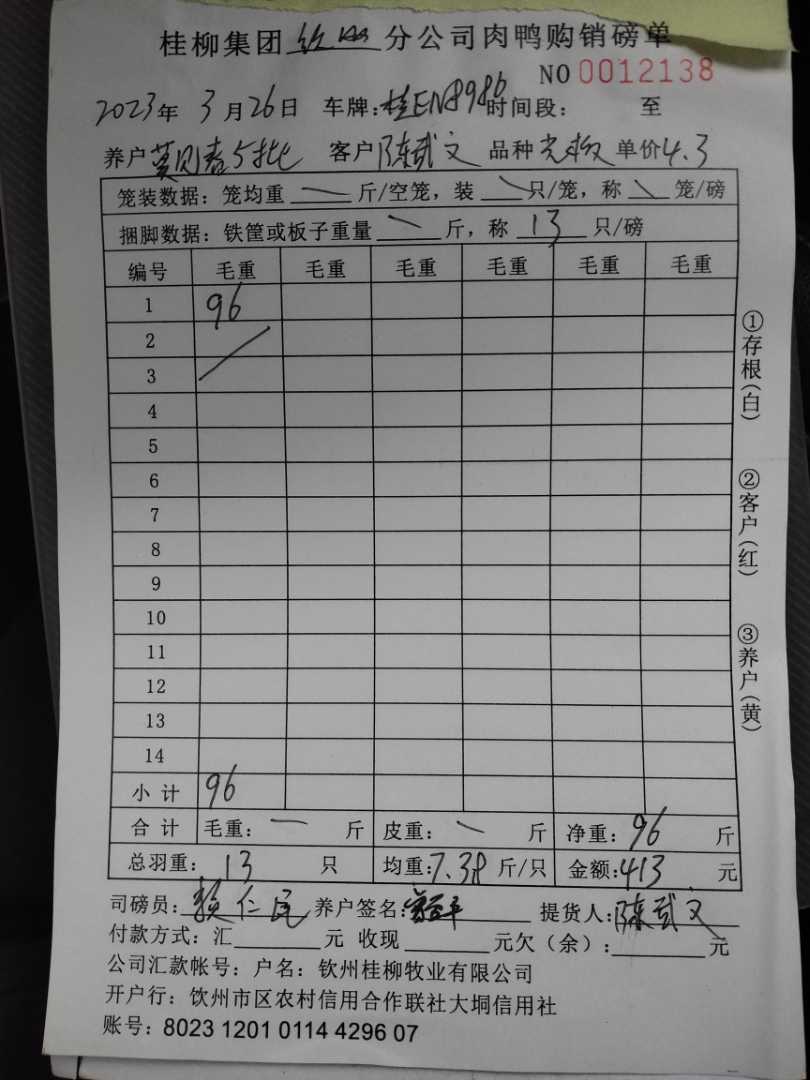 桂柳集团 分公司肉鸭购销磅单
NO 0012138
2023年 3月26日 车牌:桂EN8986 时间段: 至
养户 5批 客户 陈武文 品种 单价4.3
笼装数据: 笼均重 — 斤/空笼, 装 — 只/笼, 称 — 笼/磅
捆脚数据: 铁筐或板子重量 — 斤, 称 13 只/磅
编号 毛重 毛重 毛重 毛重 毛重 毛重
1 96
2
3
4
5
6
7
8
9
10
11
12
13
14
小计 96
合计 毛重: — 斤 皮重: — 斤 净重: 96 斤
总羽重: 13 只 均重:7.38 斤/只 金额:413 元
司磅员: 赖仁民 养户签名: 提货人:陈武文
付款方式: 汇 元 收现 元欠(余): 元
公司汇款帐号: 户名: 钦州桂柳牧业有限公司
开户行: 钦州市区农村信用合作联社大垌信用社
账号: 8023 1201 0114 4296 07
①存根(白)
②客户(红)
③养户(黄)